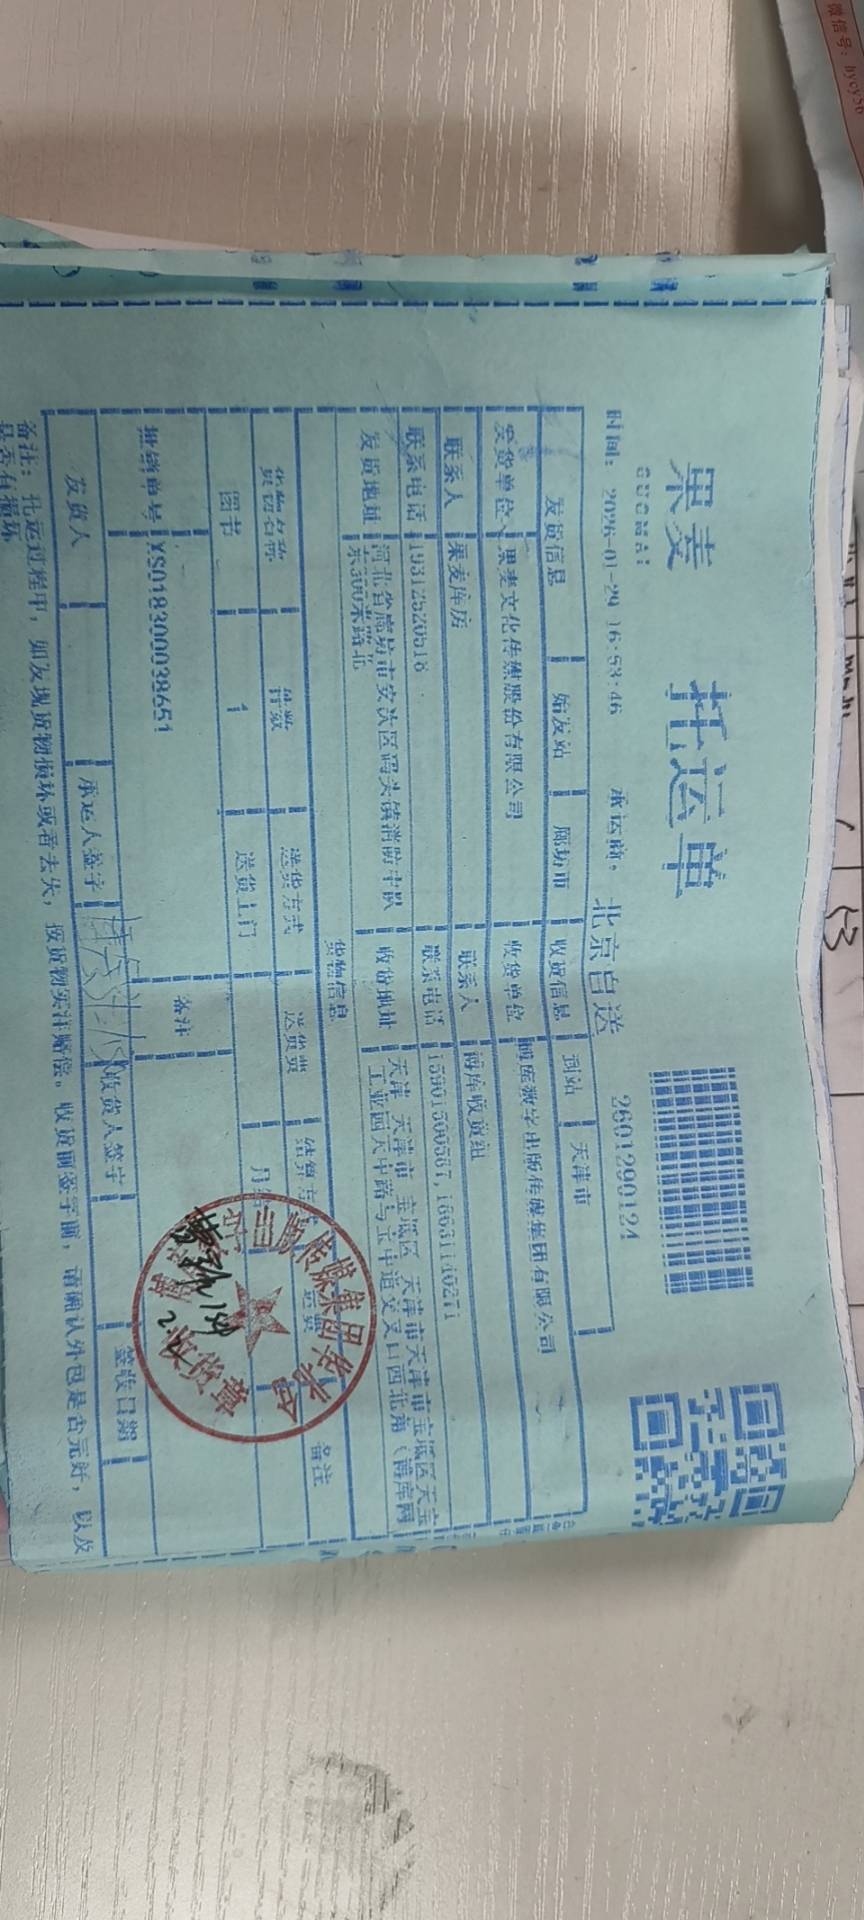 微信号: hycy56
果麦
GUOMAI
托运单
时间: 2026-01-29 16:53:46 承运商: 北京自送 2601290124
发货信息 始发站 廊坊市 收货信息 到站 天津市
发货单位 果麦文化传媒股份有限公司 收货单位 博库数字出版传媒集团有限公司
联系人 果麦库房 联系人 博库收货组
联系电话 19312520518 联系电话
发货地址 河北省廊坊市安次区码头镇消防中队
东300米路北
收货地址 天津 天津市 宝坻区 天津市天津市宝坻区天宝
工业园天中路与宝中道交叉口西北角（博库网
货物信息
货物名称 件数 送货方式 送货费 结算方式 运费 备注
图书 1 送货上门 月
批销单号 XS018300038651 备注
发货人 承运人签字 收货人签字 签收日期
备注: 托运过程中, 如发现货物损坏或者丢失, 按货物实洋赔偿。收货前签字前, 请确认外包是否完好, 以及
是否有损坏